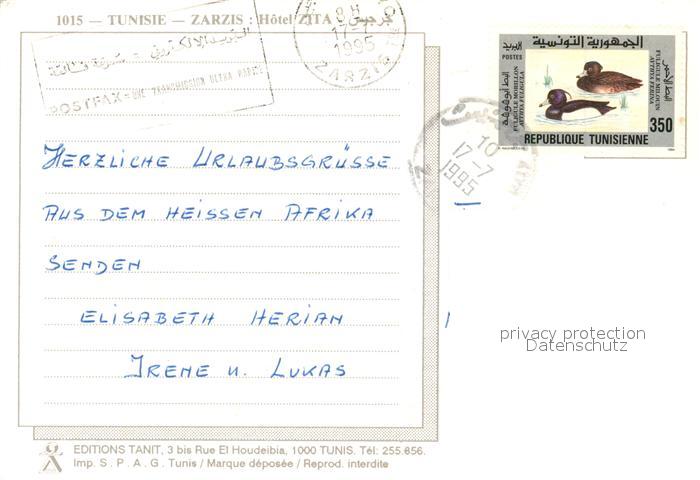 1015 — TUNISIE — ZARZIS : Hôtel ZITA جرجيس
8H
17-7
1995
ZARZIS
البريد الإلكتروني = سرعة فائقة
POSTFAX = UNE TRANSMISSION ULTRA RAPIDE
الجمهورية التونسية
POSTES البريد
FULIGULE MORILLON
AYTHYA FULIGULA
FULIGULE MILOUIN
AYTHYA FERINA
350
REPUBLIQUE TUNISIENNE
10
17-7
1995
HERZLICHE URLAUBSGRÜSSE
AUS DEM HEISSEN AFRIKA
SENDEN
ELISABETH HERIAN
IRENE u. LUKAS
privacy protection
Datenschutz
EDITIONS TANIT, 3 bis Rue El Houdeibia, 1000 TUNIS. Tél: 255.656.
Imp. S. P. A. G. Tunis / Marque déposée / Reprod. interdite